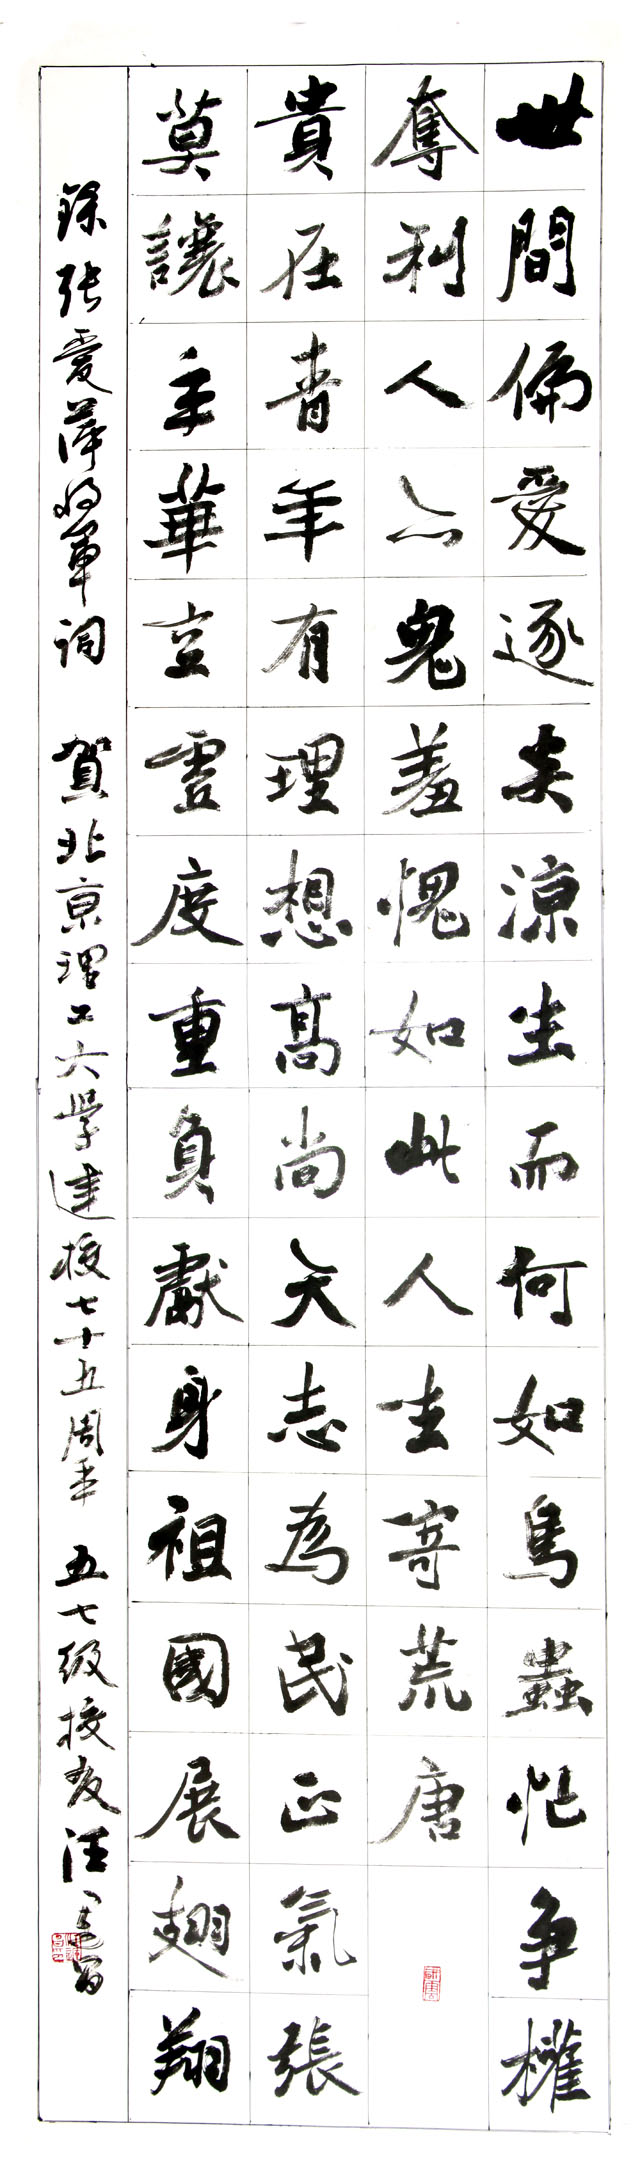 世間偏愛逐炎涼生而何如鳥蟲忙争權
奪利人亦鬼羞愧如此人生寄荒唐
貴在青年有理想高尚矢志為民正氣張
莫讓年華空虛度重負獻身祖國展翅翔
錄张愛萍将軍词 賀北京理工大学建校七十五周年 五七级校友汪